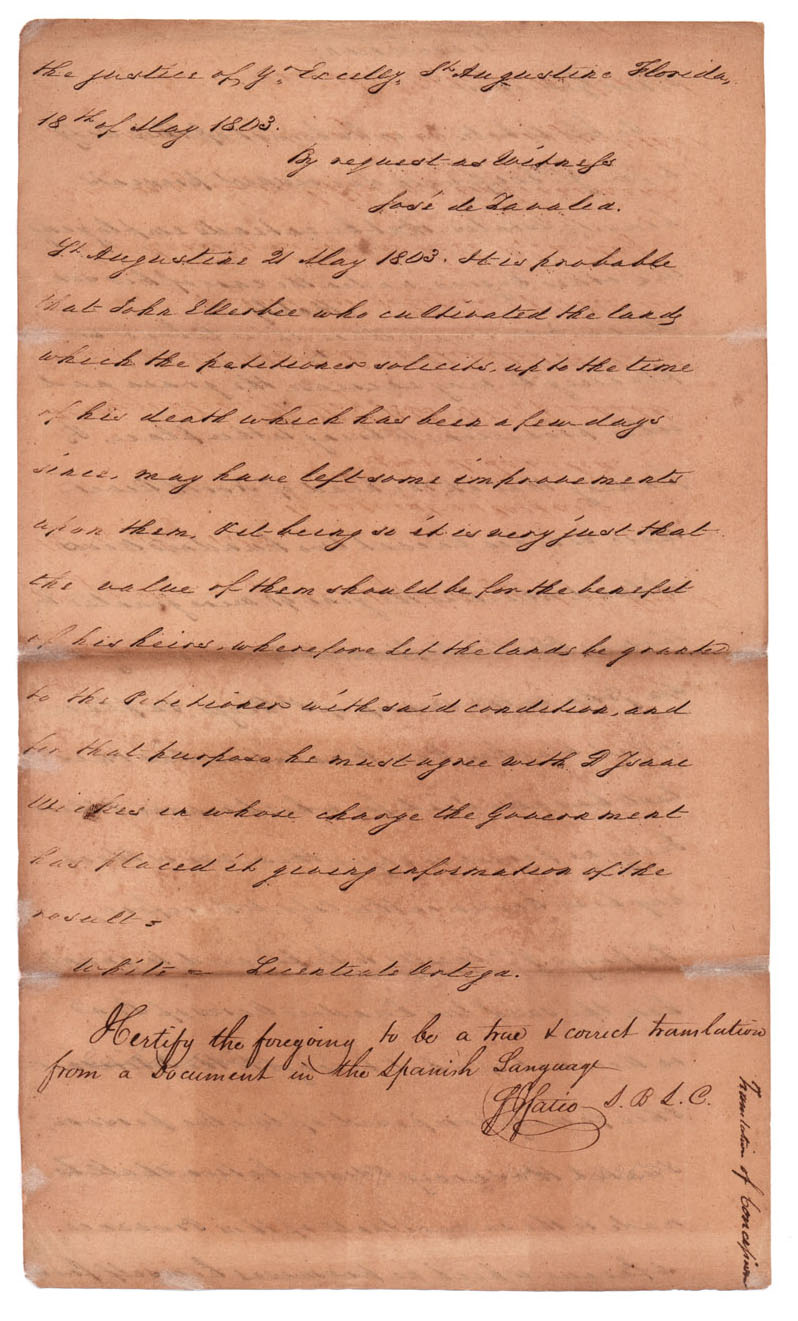 the justice of Yr Excelly. St Augustine Florida,
18th of May 1803.
By request as Witness
José de Zavalea.
St Augustine 21 May 1803. It is probable
that John Ellerbee who cultivated the lands
which the petitioner solicits, up to the time
of his death which has been a few days
since, may have left some improvements
upon them, Yet being so it is very just that
the value of them should be for the benefit
of his heirs, wherefore let the lands be granted
to the Petitioner with said condition, and
for that purpose he must agree with D Isaac
Weekes in whose charge the Government
has placed it giving information of the
result =
White = Licentiate Ortega.
I Certify the foregoing to be a true & correct translation
from a Document in the Spanish Language
Fatio S. B. L. C.
Translation of Concession